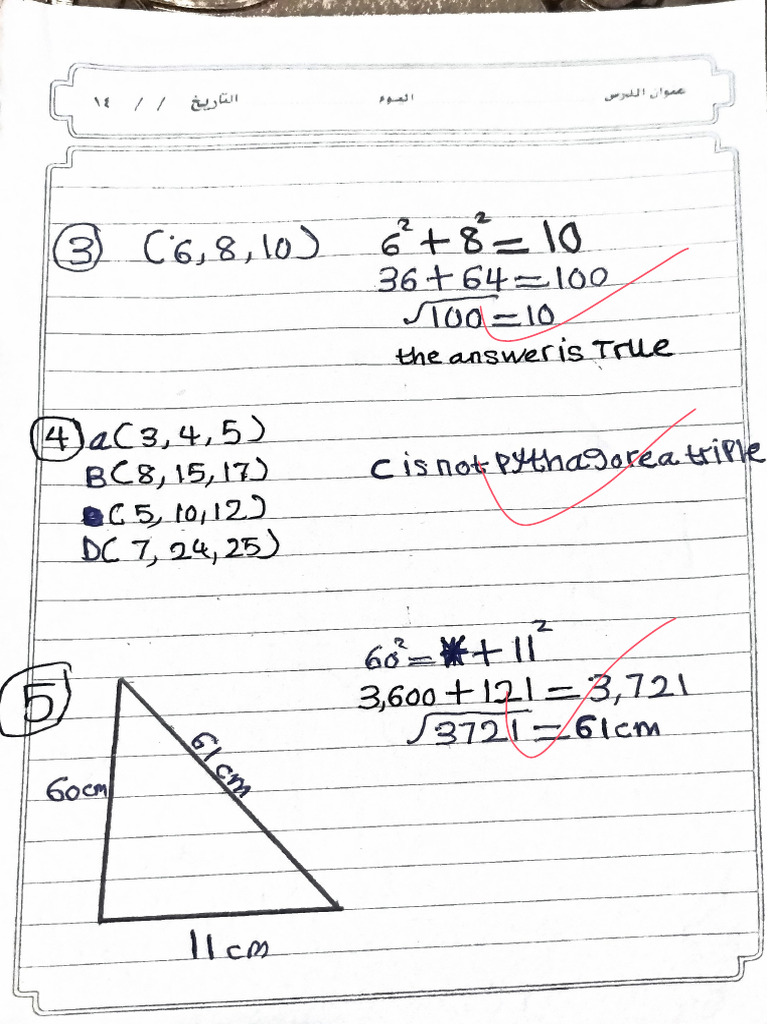 عنوان الدرس الضوء التاريخ / / ١٤
3 (6, 8, 10) 6² + 8² = 10
36 + 64 = 100
√100 = 10
the answer is True
4 a(3, 4, 5)
B(8, 15, 17) C is not pythagorea triple
(5, 10, 12)
D(7, 24, 25)
60² = + 11²
5 3,600 + 121 = 3,721
√3721 = 61cm
61cm
60cm
11cm